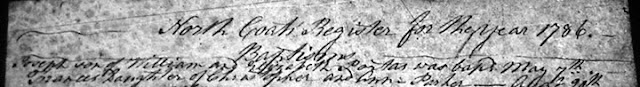 North Coats Register for the Year 1786.
Baptisms
Joseph son of William and Elizabeth was bapd. May 7th
Frances Daughter of Christopher and Ann Parker 29th